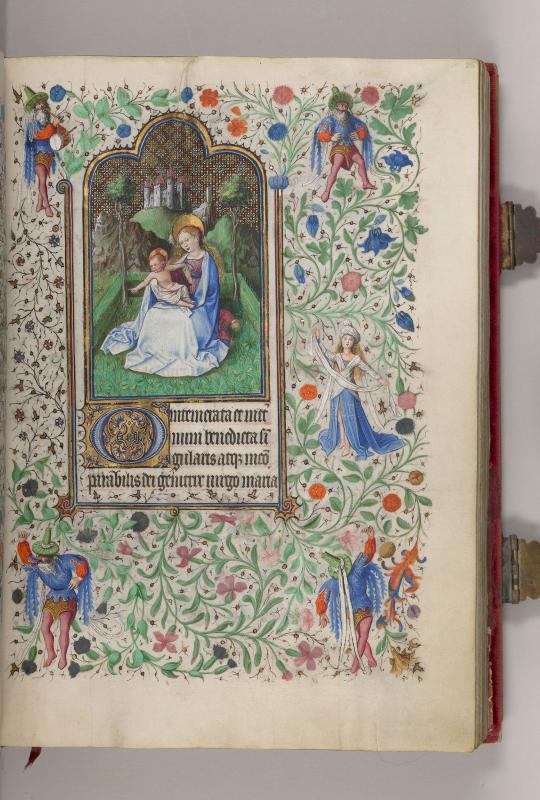 Ointemerata et inte
num benedicta sī
gularis atqꝫ incō
parabilis dei genitrix virgo maria